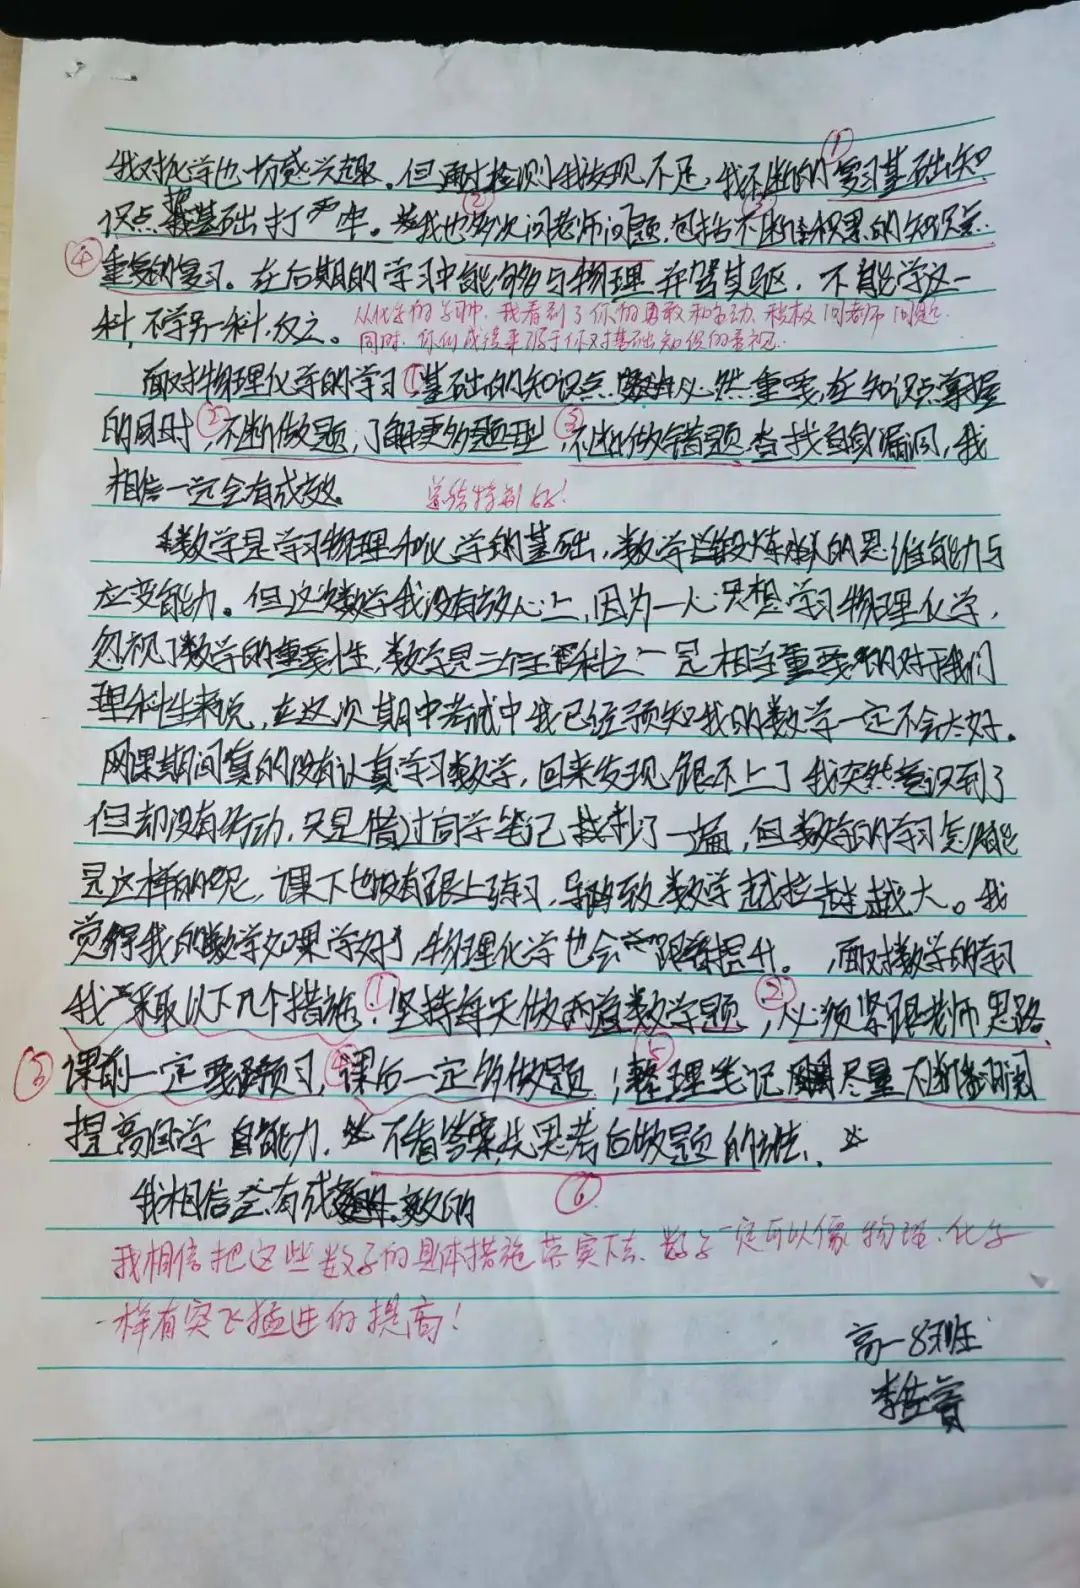 我对化学也十分感兴趣。但通过检测我发现不足,我不断的①复习基础知
识点把基础打严牢。②我也多次问老师问题,③包括不断积累的知识点
④重复的复习。在后期的学习中能够多与物理并驾其驱,不能学这一
科,不学另一科,反之。
从化学的学习中,我看到了你的勇敢和主动,积极问老师问题
同时,你的成绩来源于你对基础知识的重视
面对物理化学的学习①基础的知识点必然重要,在知识点掌握
的同时②,不断做题,了解更多题型,③不断做错题查找自身漏洞,我
相信一定会有成效
总结特别好!
数学是学习物理和化学的基础,数学锻炼人的思维能力与
应变能力。但这次数学我没有放心上,因为一心思想学习物理化学,
忽视了数学的重要性,数学是三个主要科之一是相当重要的对于我们
理科生来说,在这次期中考试中我已经预知我的数学一定不会太好。
网课期间真的没有认真学习数学,回来发现跟不上了我突然意识到了
但却没有行动,只是借过同学笔记抄了一遍,但数学的学习怎么能
是这样的呢,课下也没有跟上练习,导致数学越拉越大。我
觉得我的数学如果学好了,物理化学也会跟着提升。面对数学的学习
我采取以下几个措施:①坚持每天做两道数学题,②必须紧跟老师思路
③课前一定要预习,④课后一定多做题,⑤整理笔记尽量不断
提高自学自能力,不看答案先思考后做题的
⑥
我相信会有成效的
我相信把这些数学的具体措施落实下去,数学一定可以像物理、化学
一样有突飞猛进的提高!
高一8班